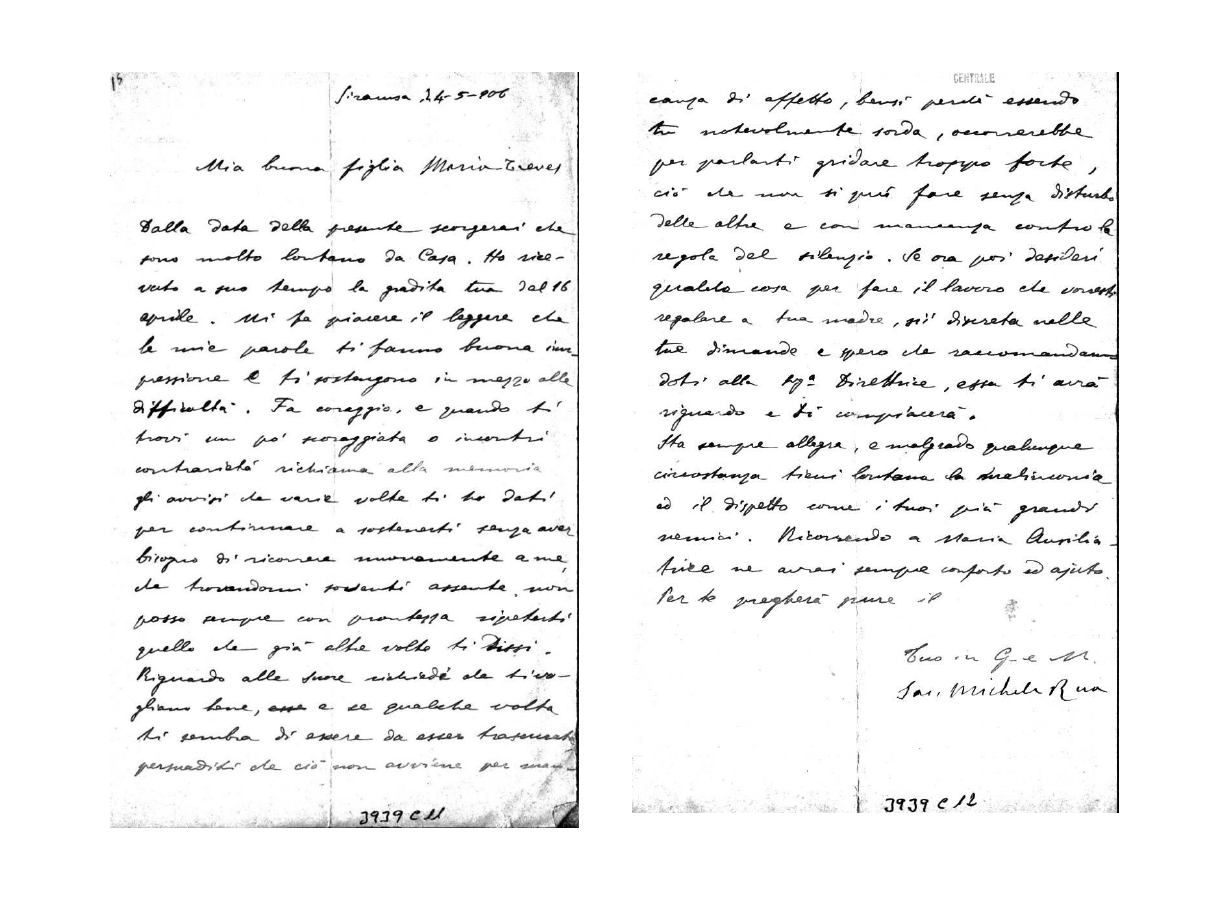 15
Siracusa 24-5-906
Mia buona figlia Maria Treves
Dalla data della presente scorgerai che
sono molto lontano da Casa. Ho rice-
vuto a suo tempo la gradita tua del 16
aprile. Mi fa piacere il leggere che
le mie parole ti fanno buona im-
pressione e ti sostengono in mezzo alle
difficoltà. Fa coraggio, e quando ti
trovi un po' scoraggiata o incontri
contrarietà richiama alla memoria
gli avvisi che varie volte ti ho dati
per continuare a sostenerti senza aver
bisogno di ricorrere nuovamente a me,
che trovandomi sovente assente, non
posso sempre con prontezza ripeterti
quello che già altre volte ti dissi.
Riguardo alle suore richiede che ti vo-
gliano bene, esse e se qualche volta
ti sembra di essere da esse trascurata
persuaditi che ciò non avviene per man-
3939 C 11
CENTRALE
canza di affetto, bensì perchè essendo
tu notevolmente sorda, occorrerebbe
per parlarti gridare troppo forte,
ciò che non si può fare senza disturbo
delle altre e con mancanza contro la
regola del silenzio. Se ora poi desideri
qualche cosa per fare il lavoro che vorresti
regalare a tua madre, sii discreta nelle
tue dimande e spero che raccomandan-
doti alla Direttrice, essa ti avrà
riguardo e ti compiacerà.
Sta sempre allegra, e malgrado qualunque
circostanza tieni lontana la malinconia
ed il dispetto come i tuoi più grandi
nemici. Ricorrendo a Maria Ausilia-
trice ne avrai sempre conforto ed ajuto.
Per te pregherà pure il
Tuo in G. e M.
Sac. Michele Rua
3939 C 12